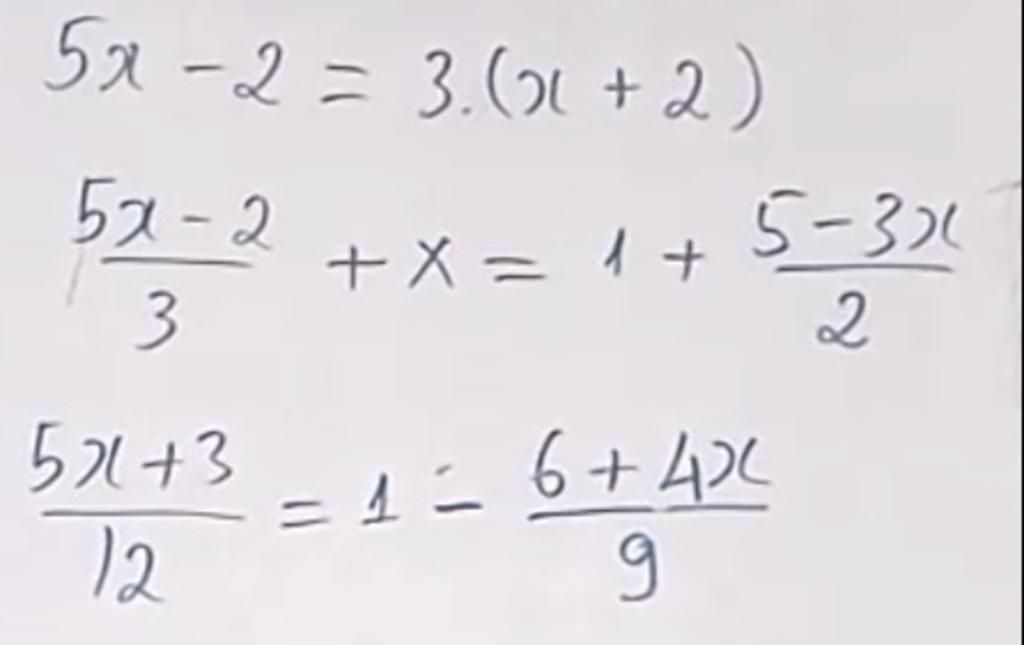 5x - 2 = 3.(x + 2)
(5x - 2)/3 + x = 1 + (5 - 3x)/2
(5x + 3)/12 = 1 - (6 + 4x)/9